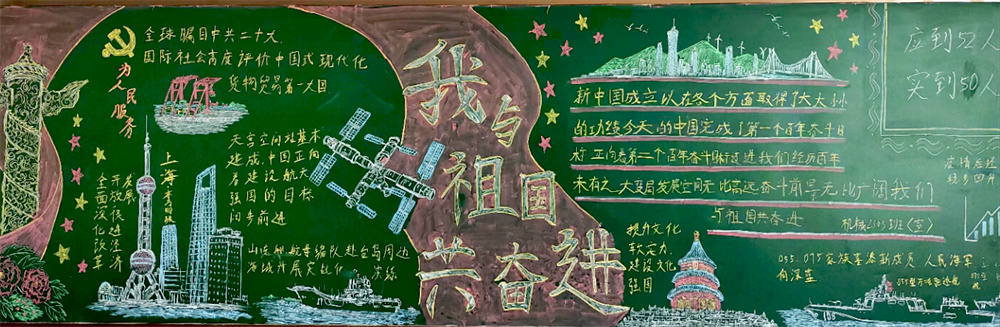 全球瞩目中共二十大
国际社会高度评价中国式现代化
货物贸易第一大国
为人民服务
天宫空间站基本
建成中国正向
着建设航天
强国的目标
阔步前进
上海
发展
开放促进经济
全面深化改革
山东舰航母编队赴台岛周边
海域开展实战化
我与祖国共奋进
新中国成立以在各个方面取得了大大小小
的功绩今天的中国完成了第一个百年奋斗目
标正向着第二个百年奋斗目标迈进我们经历百年
未有之大变局发展空间无比高远奋斗前景无比广阔我们
与祖国共奋进
提升文化
软实力
建设文化
强国
055.075家族喜添新成员 人民海军
向深蓝
105
应到52人
实到50人